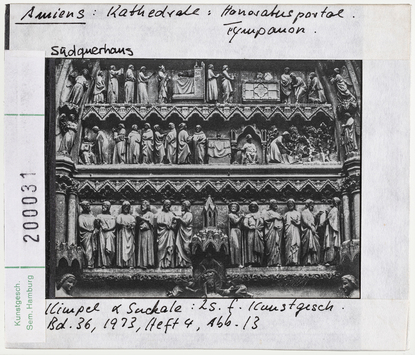 Amiens: Kathedrale: Honoratusportal.
Tympanon.
Südquerhaus
200031
Kunstgesch.
Sem. Hamburg
Kimpel & Suckale: Zs. f. Kunstgesch.
Bd. 36, 1973, Heft 4, Abb. 13